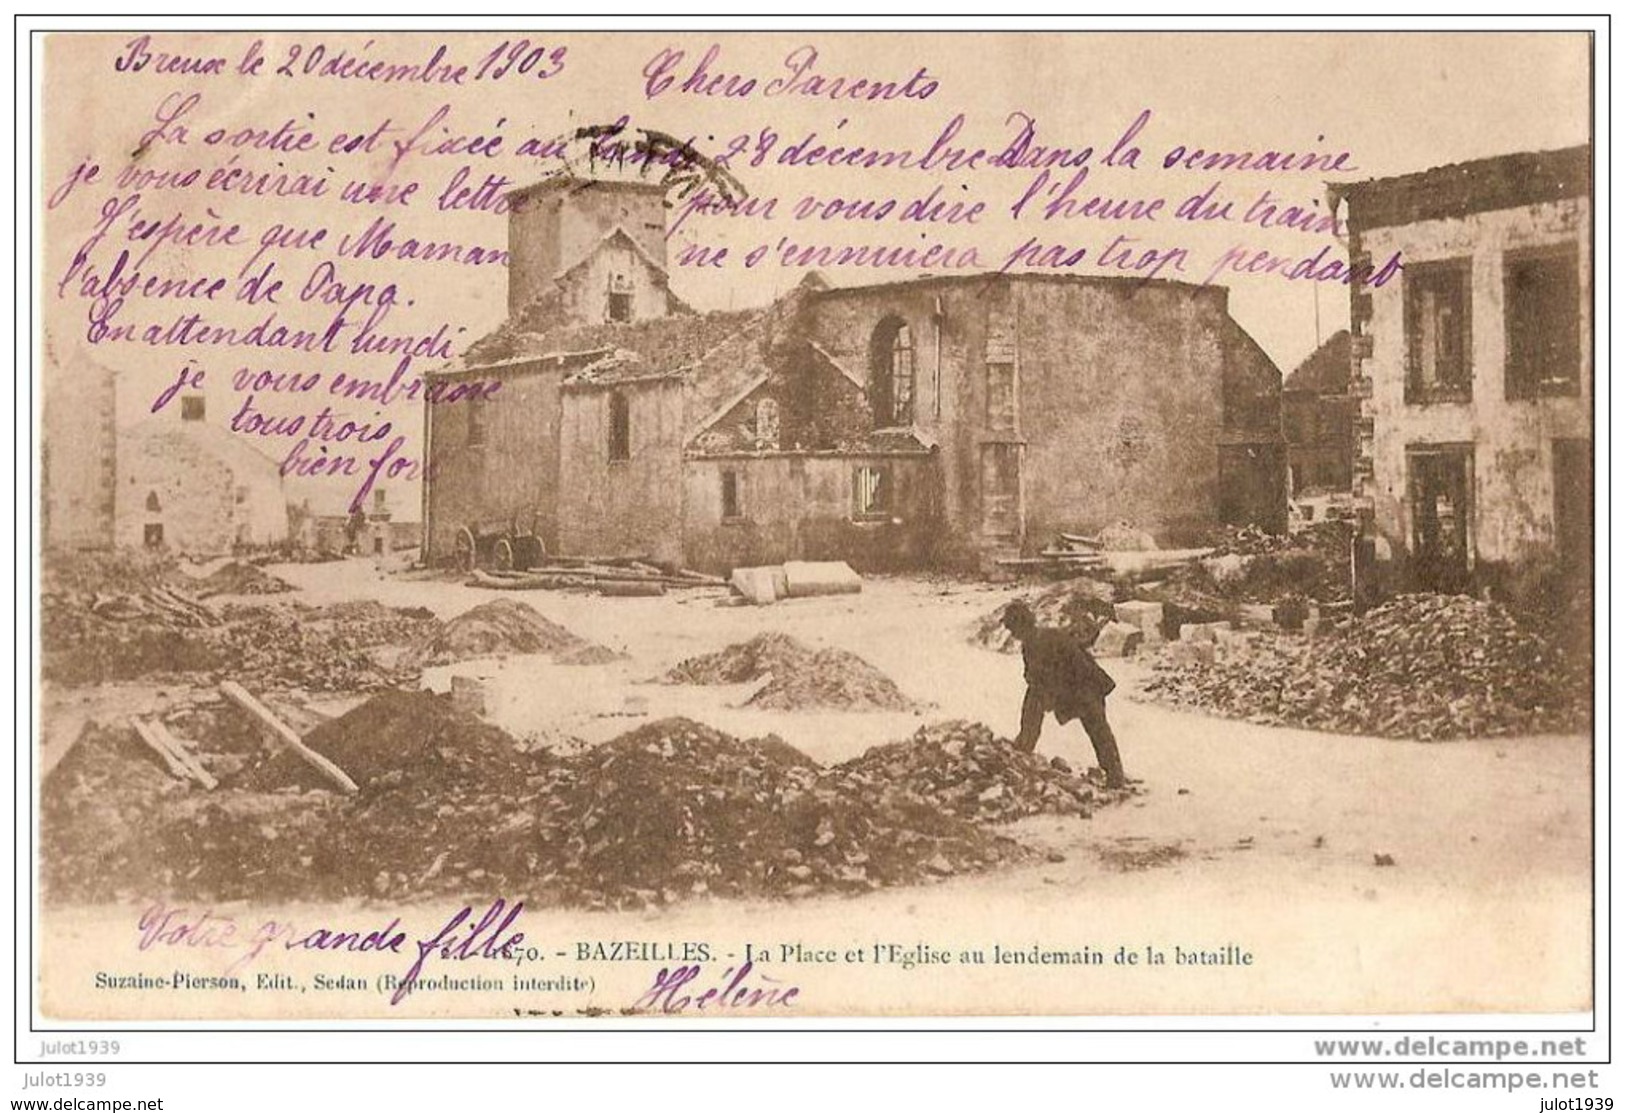 Breux le 20 décembre 1903
Chers Parents
La sortie est fixée au lundi 28 décembre Dans la semaine
je vous écrirai une lettre pour vous dire l'heure du train
J'espère que Maman ne s'ennuiera pas trop pendant
l'absence de Papa.
En attendant lundi
je vous embrasse
tous trois
bien fort
Votre grande fille
Hélène
1870. - BAZEILLES. - La Place et l'Eglise au lendemain de la bataille
Suzaine-Pierson, Edit., Sedan (Reproduction interdite)
julot1939
www.delcampe.net
julot1939
www.delcampe.net
www.delcampe.net
julot1939